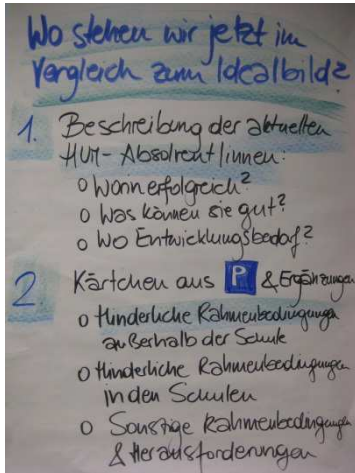 Wo stehen wir jetzt im
Vergleich zum Idealbild?
1. Beschreibung der aktuellen
HUM-Absolvent/innen:
o Worin erfolgreich?
o Was können sie gut?
o Wo Entwicklungsbedarf?
2 Kärtchen aus P & Ergänzungen
o Hinderliche Rahmenbedingungen
außerhalb der Schule
o Hinderliche Rahmenbedingungen
in den Schulen
o Sonstige Rahmenbedingungen
& Herausforderungen